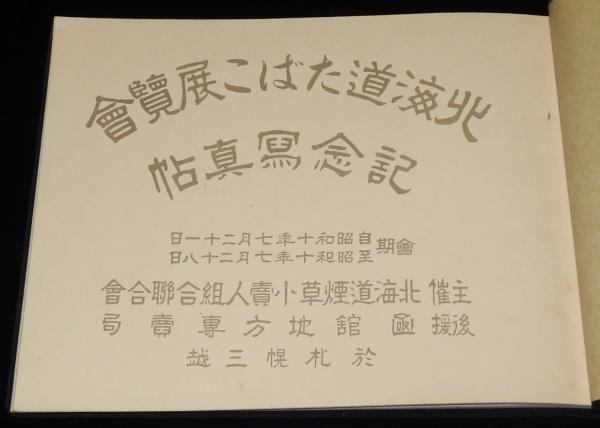 北海道たばこ展覽會
記念寫真帖
會期 自昭和十年七月二十一日
至昭和十年七月二十八日
主催 北海道煙草小賣人組合聯合會
後援 函館地方專賣局
於札幌三越